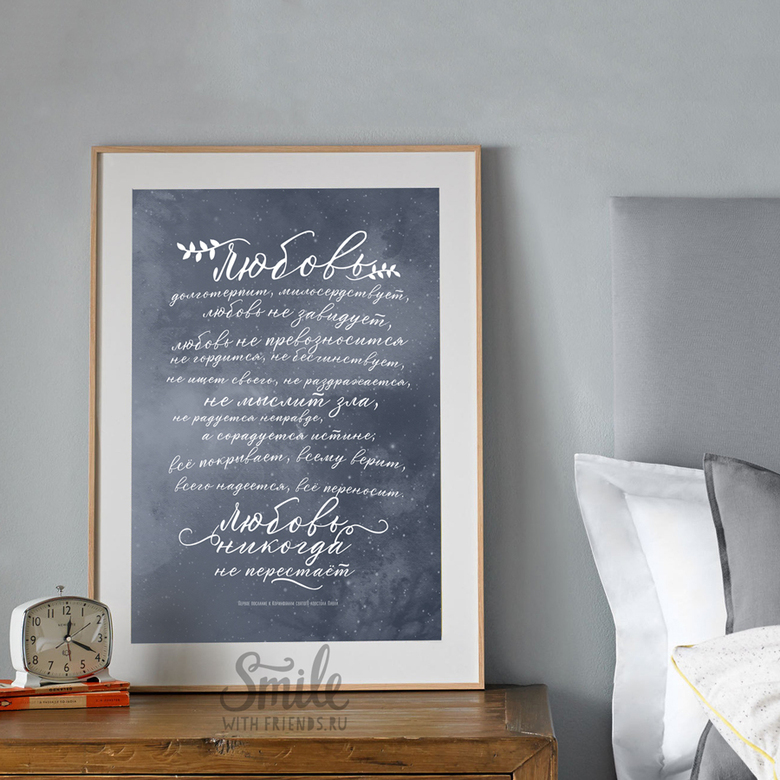 Любовь
долготерпит, милосердствует,
любовь не завидует,
любовь не превозносится
не гордится, не бесчинствует,
не ищет своего, не раздражается,
не мыслит зла,
не радуется неправде,
а сорадуется истине;
всё покрывает, всему верит,
всего надеется, всё переносит.
Любовь
никогда
не перестаёт
Первое послание к Коринфянам святого апостола Павла
12
1
2
3
4
5
6
7
8
9
10
11
Smile
WITH FRIENDS.RU